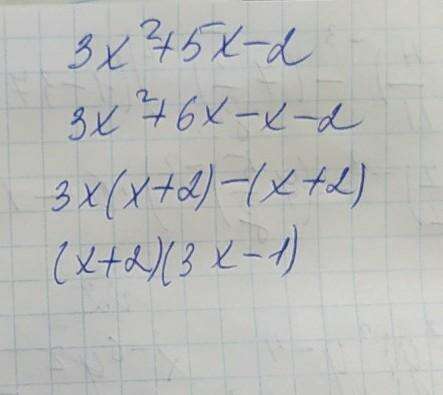 3x²+5x-2
3x²+6x-x-2
3x(x+2)-(x+2)
(x+2)(3x-1)